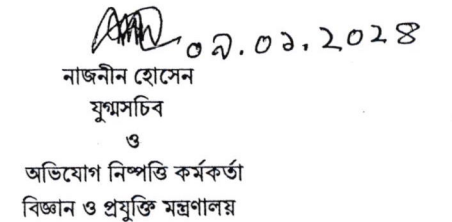 ০৯.০১.২০২৪
নাজনীন হোসেন
যুগ্মসচিব
ও
অভিযোগ নিষ্পত্তি কর্মকর্তা
বিজ্ঞান ও প্রযুক্তি মন্ত্রণালয়